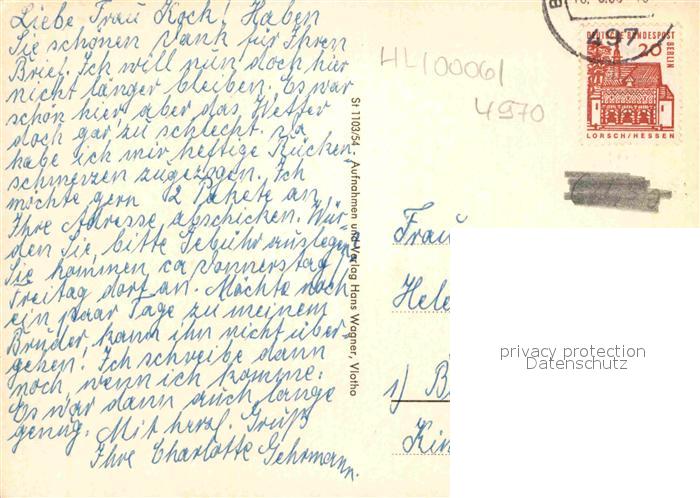 Liebe Frau Kock! Haben
Sie schönen Dank für Ihren
Brief. Ich will nun doch hier
nicht länger bleiben. Es war
schön hier aber das Wetter
doch gar zu schlecht. Da
habe ich mir heftige Rücken-
schmerzen zugezogen. Ich
möchte gern 2 Pakete an
Ihre Adresse abschicken. Wür-
den Sie, bitte Gebühr auslegen,
Sie kommen ca Donnerstag/
Freitag dort an. Möchte noch
ein paar Tage zu meinem
Bruder kann ihn nicht über-
gehen. Ich schreibe dann
noch, wenn ich komme.
Es war dann auch lange
genug. Mit herzl. Gruß
Ihre Charlotte Gehrmann.
St 1103/54 Aufnahmen und Verlag Hans Wagner, Vlotho
HL100061
4970
497
DEUTSCHE BUNDESPOST BERLIN
20
LORSCH/HESSEN
Frau
Hele
1) B
Kin
privacy protection
Datenschutz